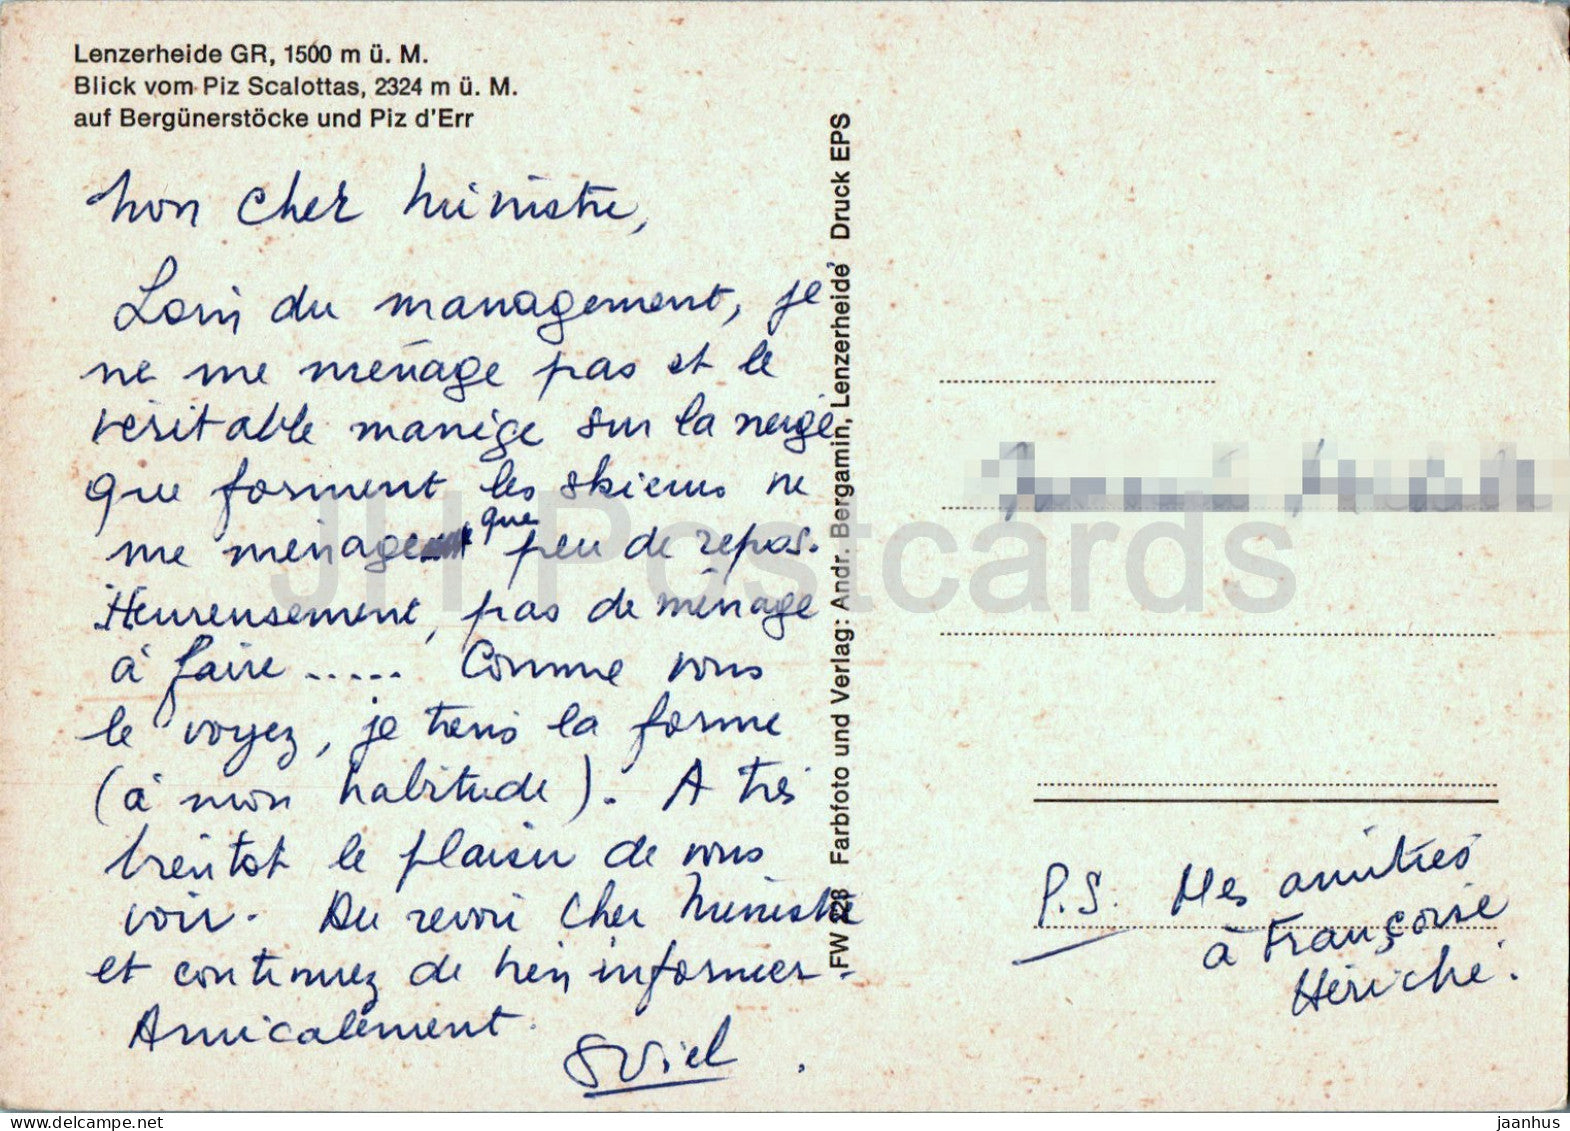 Lenzerheide GR, 1500 m ü. M.
Blick vom Piz Scalottas, 2324 m ü. M.
auf Bergünerstöcke und Piz d'Err
Mon cher Ministre,
Loin du management, je
ne me ménage pas et le
véritable manège sur la neige
que forment les skieurs ne
me ménage que peu de repos.
Heureusement, pas de ménage
à faire ..... Comme vous
le voyez, je tiens la forme
(à mon habitude). A très
bientôt le plaisir de vous
voir. Au revoir Cher Ministre
et continuez de bien informer.
Amicalement.
SViel
FW 228 Farbfoto und Verlag: Andr. Bergamin, Lenzerheide Druck EPS
P.S. Mes amitiés
à Françoise
Hériché.
JH Postcards
delcampe.net
jaanhus